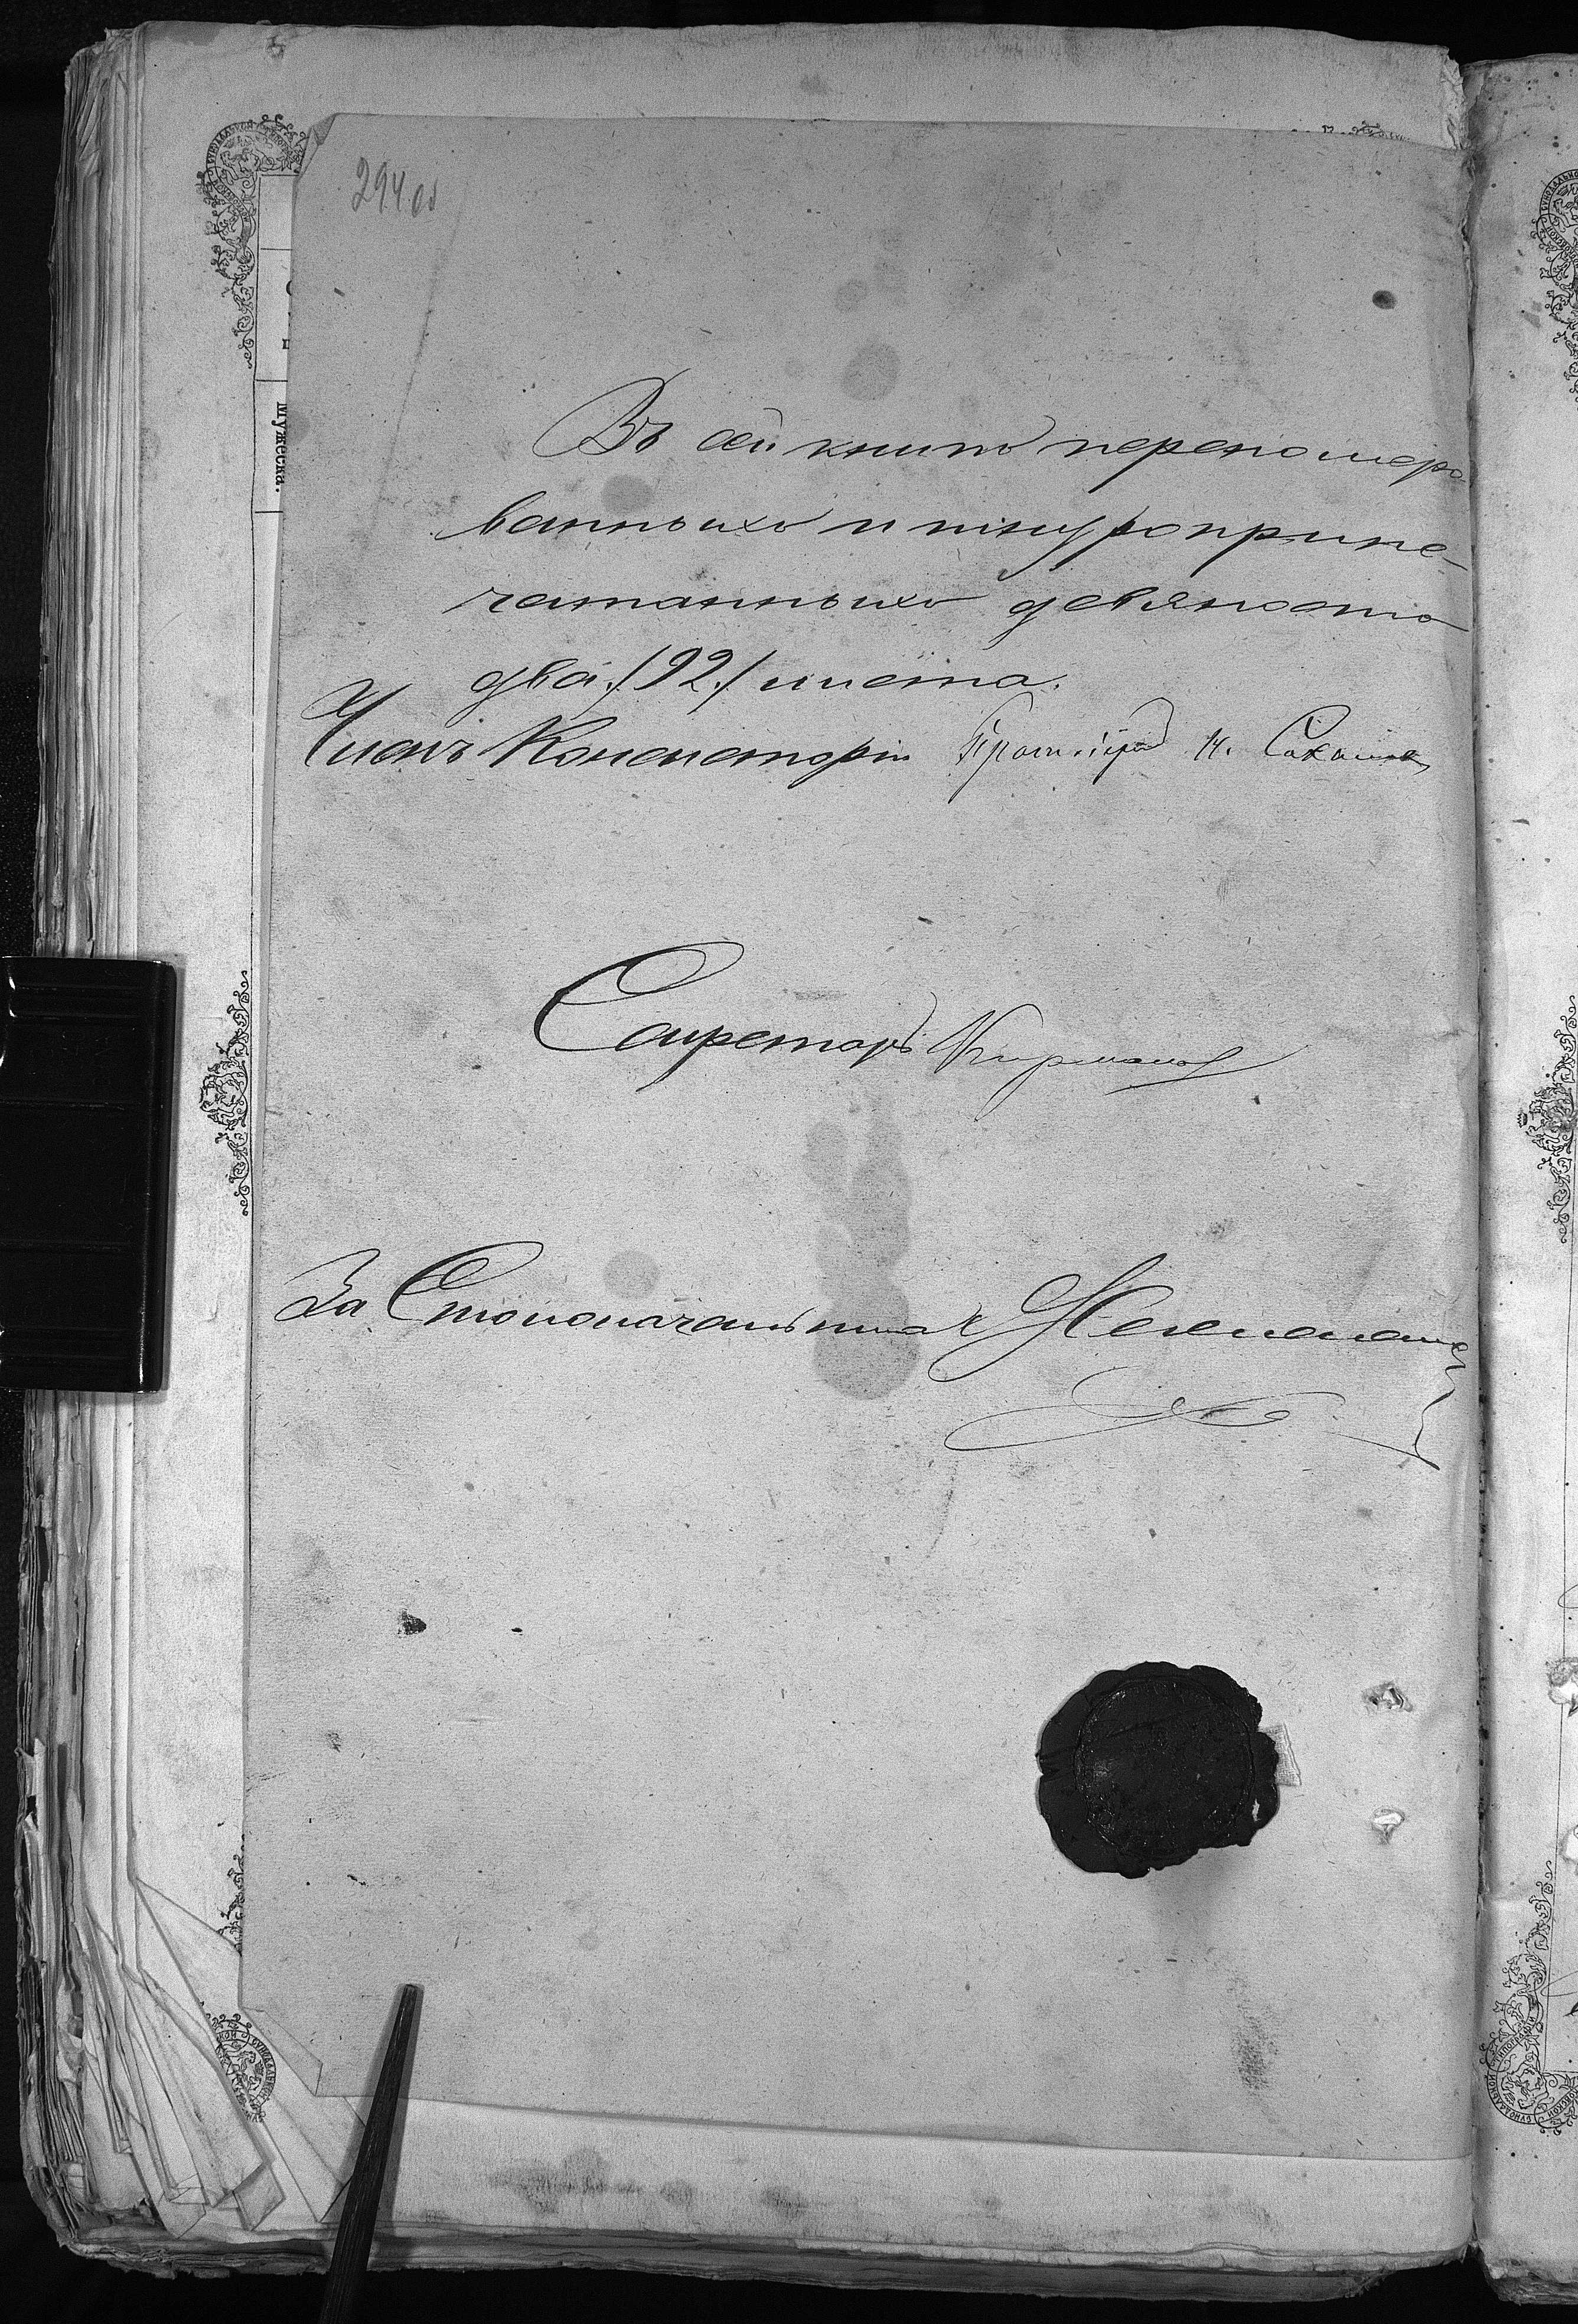 294 об
Въ сей книгѣ перенумеро-
ванныхъ и шнуроприпе-
чатанныхъ девяносто
два /92./ листа.
Членъ Консисторіи Протоіерей Н.
Секретарь
За Столоначальника
Мужеска.